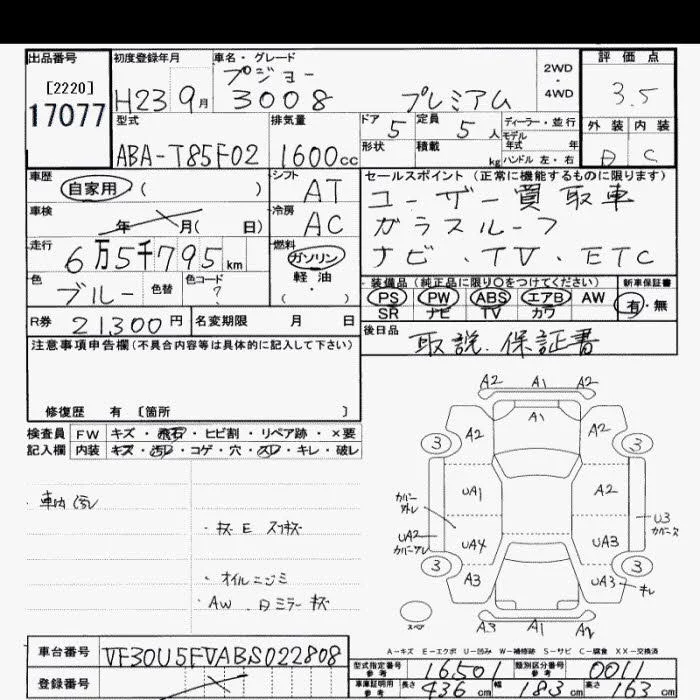 出品番号 初度登録年月 車名・グレード 評価点
[2220]
17077
H23 9月
プジョー
3008 プレミアム
2WD
・
4WD
3.5
型式 排気量 ドア 5 定員 5人 ディーラー・並行
モデル
年式 年
外装 内装
ABA-T85F02 1600cc
形状 積載 kg ハンドル 左・右
B C
車歴 シフト セールスポイント(正常に機能するものに限ります)
自家用 ( ) AT
ユーザー買取車
車検 冷房
年 月( 日) AC
ガラスルーフ
走行 燃料
6万5千795km ガソリン
軽油
( ・ )
ナビ・TV・ETC
色 色替 色コード
ブルー ?
装備品(純正品に限り○をつけてください) 新車保証書
PS PW ABS エアB AW 有・無
SR ナビ TV カワ
R券 21300円 名変期限 月 日
後日品 取説.保証書
注意事項申告欄(不具合内容等は具体的に記入して下さい)
修復歴 有 〔箇所 〕
検査員 FW キズ・飛石・ヒビ割・リペア跡・×要
記入欄 内装 キズ・汚レ・コゲ・穴・スレ・キレ・破レ
車内 汚レ
・キズ E スリキズ
・オイルニジミ
・AW.Dミラー キズ
A2 A1 A2
A1
3 A2 A2 3
カバー
外レ
UA1 A2
UA2 U3
UA4 UA3
3 3
A3 UA3 キレ
スペア A3 A1 A2
A-キズ E-エクボ U-凹み W-補修跡 S-サビ C-腐食 XX-交換済
車台番号 VF30U5FVABS022808
登録番号
型式指定番号 参考 16501 類別区分番号 参考 0011
車庫証明用 参考 長さ 436cm 幅 183cm 高さ 163cm